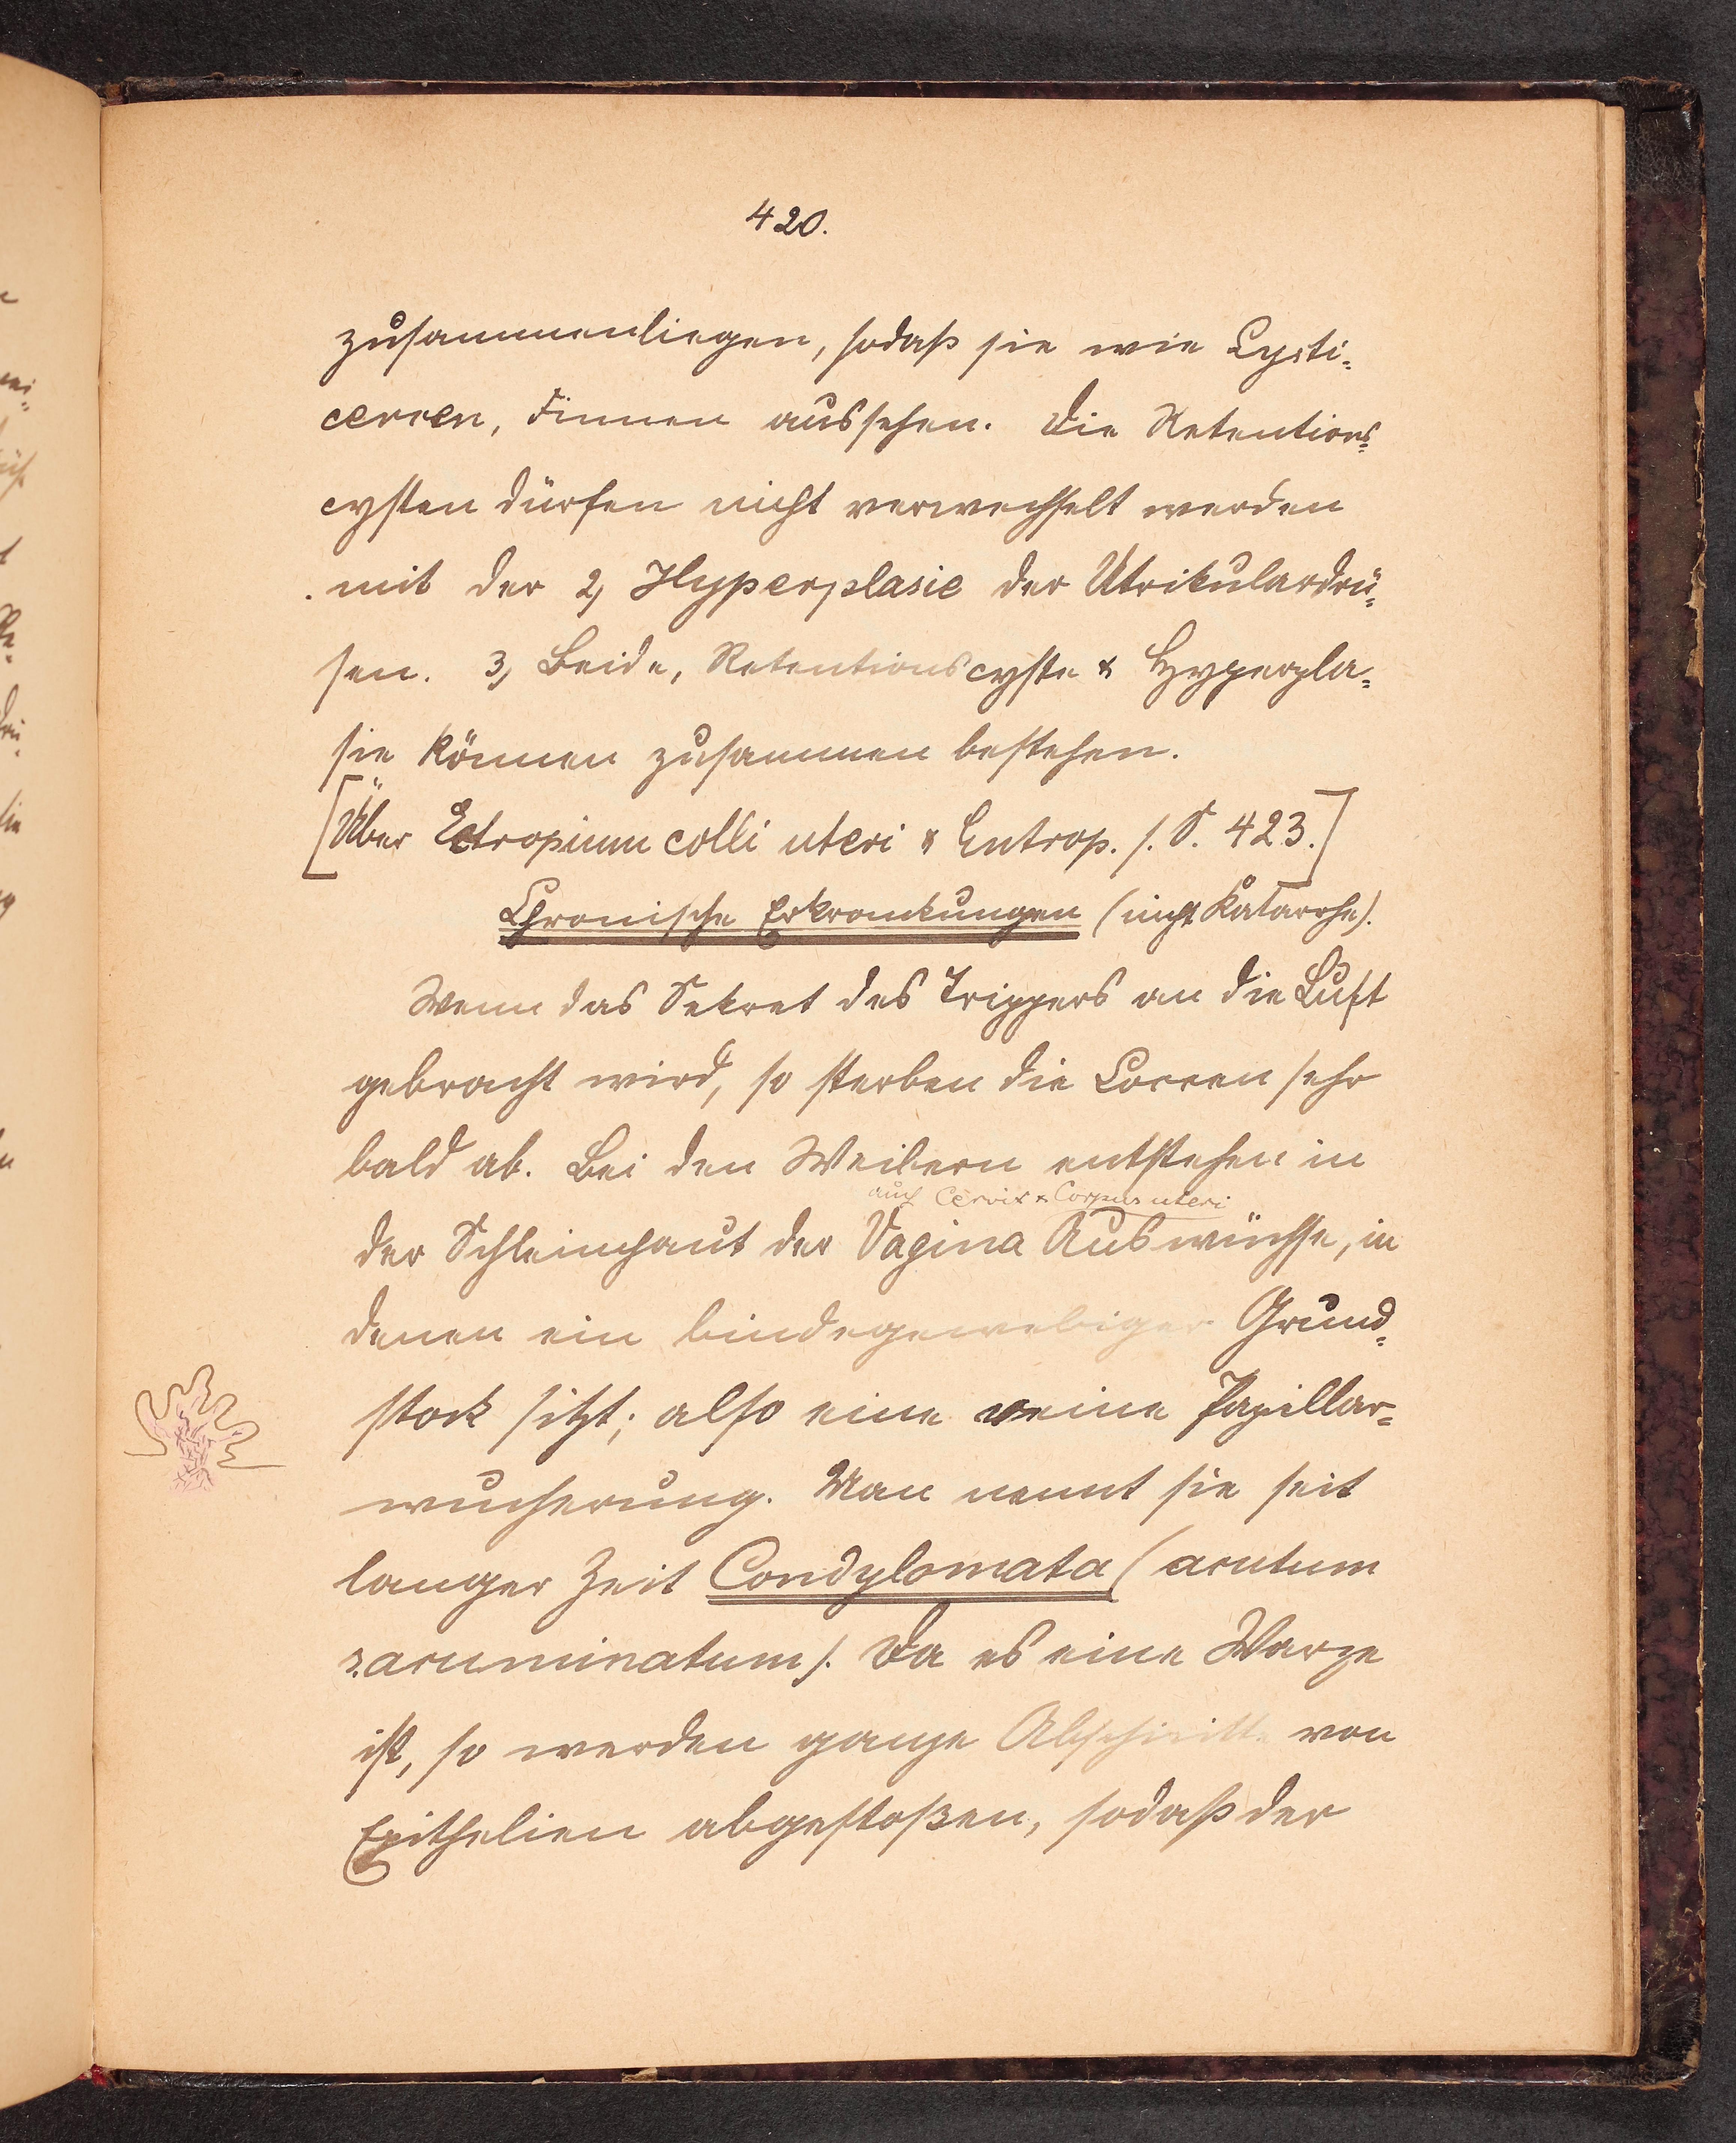 420.
zusammenliegen, sodaß sie wie Cysti-
cercen, Finnen aussehen. Die Retentions-
cysten dürfen nicht verwechselt werden
mit der 2, Hyperplasie der Utrikulardrü-
sen. 3, Beide, Retentionscyste & Hyperpla-
sie können zusammen bestehen.
[Über Ectropium colli uteri & Entrop. s. S. 423.]
Chronische Erkrankungen (nicht Katarrhe).
Wenn das Sekret des Trippers an die Luft
gebracht wird, so sterben die Coccen sehr
bald ab. Bei den Weibern entstehen in
auch Cervix & Corpus uteri
der Schleimhaut der Vagina Auswüchse, in
denen ein bindegewebiger Grund-
stock sitzt; also eine reine Papillar-
wucherung. Man nennt sie seit
langer Zeit Condylomata (acutum
s. acuminatum). Da es eine Warze
ist, so werden ganze Abschnitte von
Epithelien abgestoßen, sodaß der